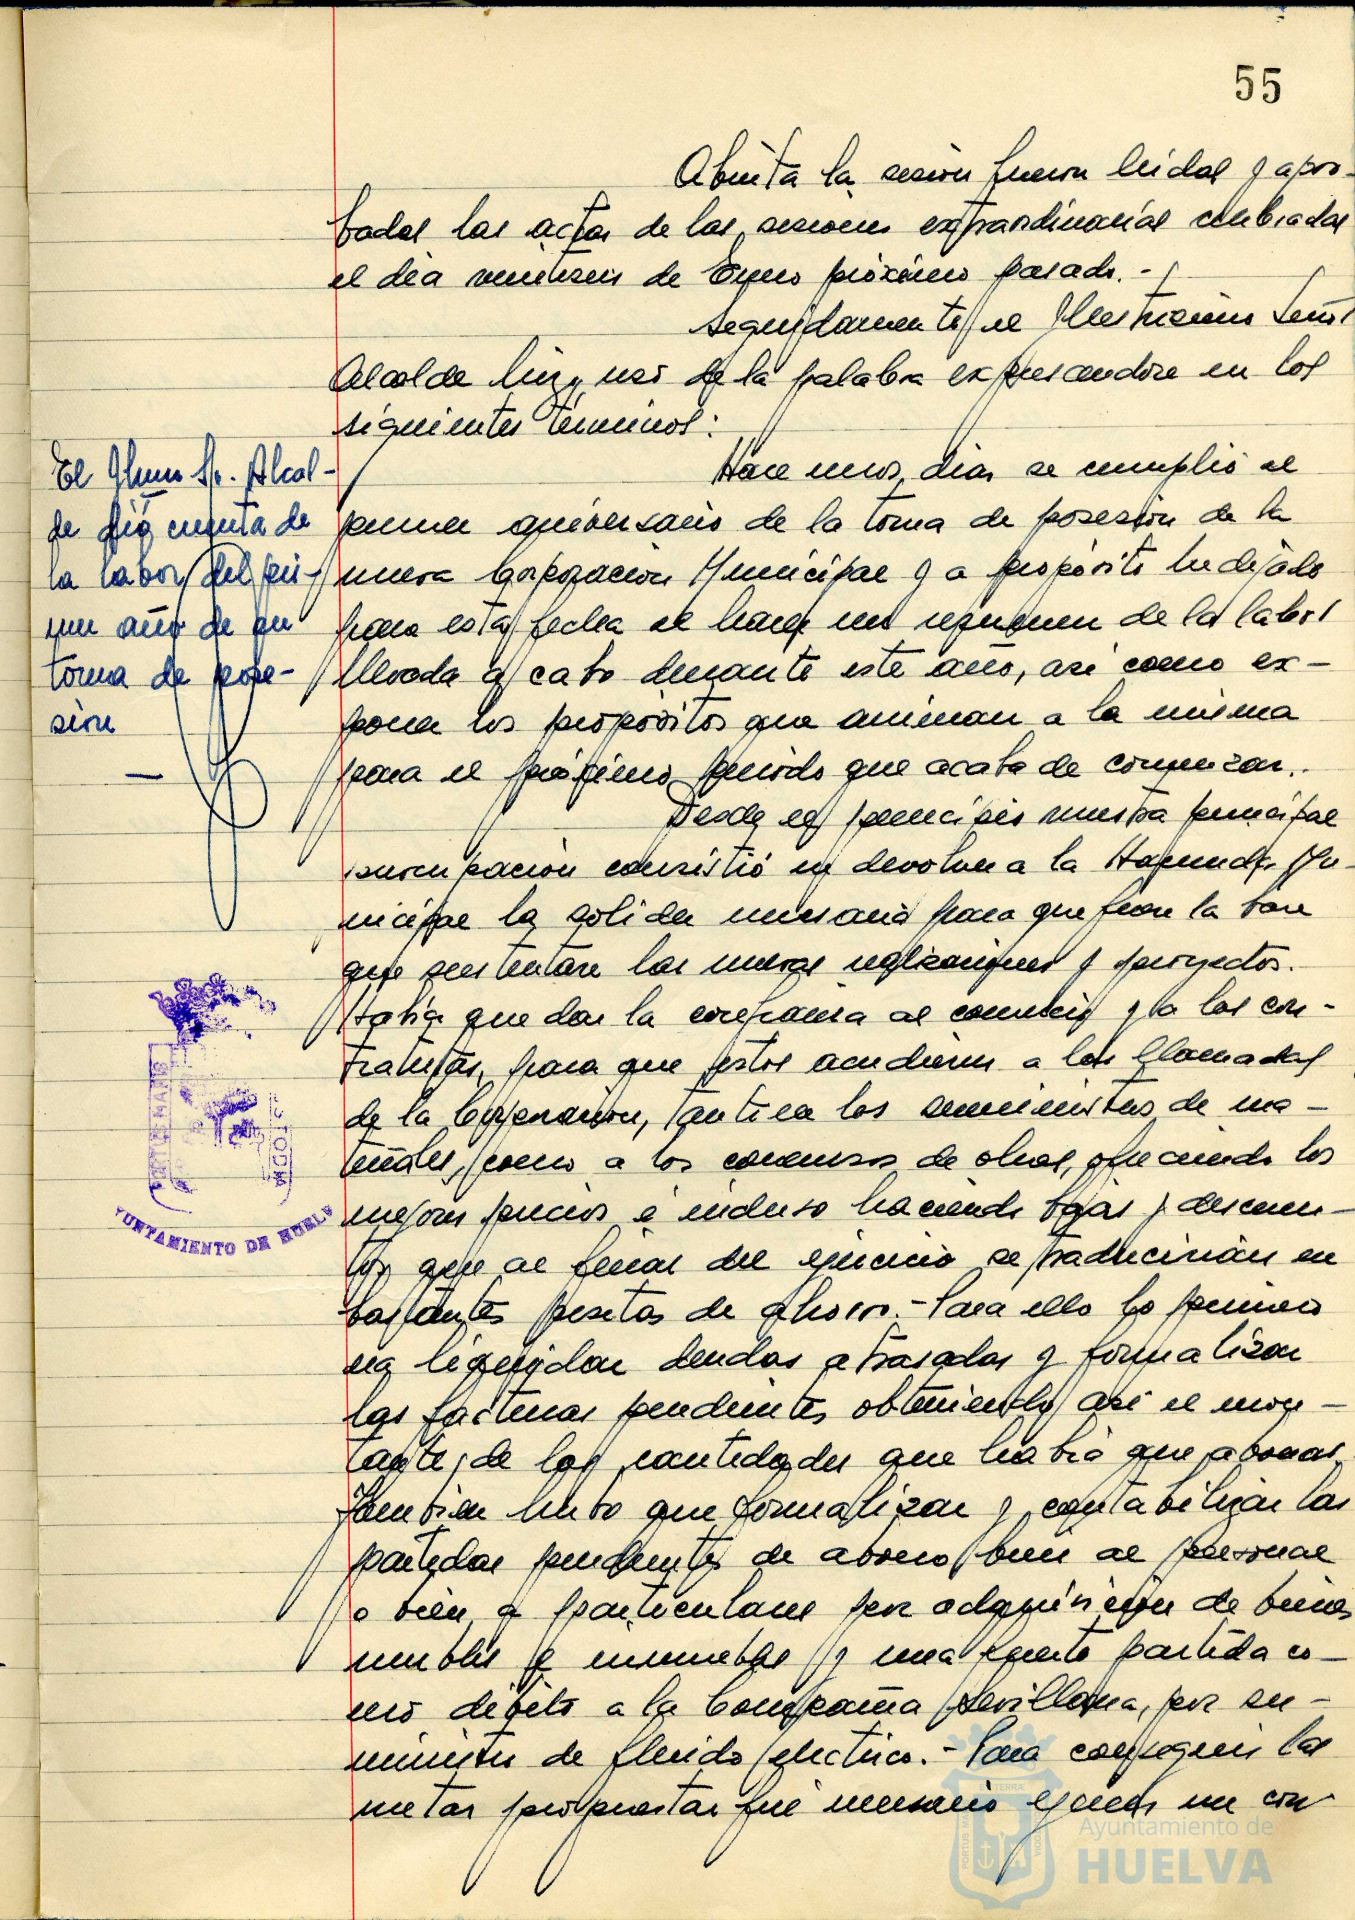 55
Abierta la sesión fueron leidas y apro-
badas las actas de las sesiones extraordinarias celebradas
el dia veintiseis de Enero próximo pasado.-
Seguidamente el Ilustrisimo Señor
Alcalde hizo uso de la palabra expresandose en los
siguientes términos:
El Ilmo Sr. Alcal-
de dió cuenta de
la labor del pri-
mer año de su
toma de pose-
sión
Hace unos dias se cumplió el
primer aniversario de la toma de posesión de la
nueva Corporación Municipal y a propósito he dejado
para esta fecha el hacer un resumen de la labor
llevada a cabo durante este año, asi como ex-
poner los propósitos que animan a la misma
para el próximo periodo que acaba de comenzar.
Desde el principio nuestra principal
preocupación consistió en devolver a la Hacienda Mu-
nicipal la solidez necesaria para que fuera la base
que sustentara las nuevas realizaciones y proyectos.
Habia que dar la confianza al comercio y a los con-
tratistas, para que estos acudieran a las llamadas
de la Corporación, tanto en los suministros de ma-
teriales, como a los concursos de obras, ofreciendo los
mejores precios é incluso haciendo bajas y descuen-
tos que al final del ejercicio se traducirian en
bastantes pesetas de ahorro.- Para ello lo primero
era liquidar deudas atrasadas y formalizar
las facturas pendientes obteniendo asi el mon-
tante de las cantidades que habia que abonar.
Tambien hubo que formalizar y contabilizar las
partidas pendientes de abono bien al personal
o bien a particulares por adquisición de bienes
muebles e inmuebles y una fuerte partida co-
mo débito a la Compañia Sevillana, por su-
ministro de fluido electrico.- Para conseguir las
metas propuestas fué necesario ejercer un con-
PORTUS MARIS
CUSTODIA
AYUNTAMIENTO DE HUELVA
Ayuntamiento de
HUELVA